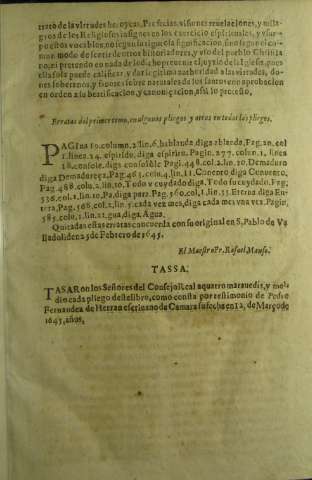 trato de las virtudes heroycas, Profecias, visiones, reuelaciones, y mila-
gros de los Religiosos insignes en los exercicios espirituales, y vsur-
po estos vocablos, no segun la rigurosa significacion, sino segun el co-
mun modo de sentir de otros historiadores, y del pueblo Christia-
no, ni pretendo en nada de lo dicho preuenir el juyzio de la Iglesia, pues
ella sola puede calificar, y dar legitima authoridad a las virtudes, do-
nes soberanos, y fauores sobre naturales de los santos no aprobados
en orden a su beatificacion, y canonizacion, assi lo protesto.
Erratas del primer tomo, en algunos pliegos y otras en todos los pliegos.
PAGINA 10. column. 2. lin. 6. hablanda, diga ablanda, Pag. 20. col
1. linea 24. espiridu, diga espiritu. Pagin. 277. colun. 1. linea
18. consoie, diga consolóle. Pagi. 448. col. 2. lin. 10. Demaduro
diga De madureça, Pag. 461. coln. 4. lin. 11. Concoro diga Conuento,
Pag. 488. colu. 2. lin. 10. Todo v cuydado diga. Todo su cuydado. Pag.
526. col. 1. lin. 10. Pa, diga para. Pag. 560. col. 1. lin. 15. Eterna diga En-
tera, Pag. 568. col. 2. lin. 5. cada vez mes, diga cada mes vna vez. Pagin.
585. colu. 1. lin. 21. gua, diga, Agua.
Quitadas estas erratas concuerda con su original en S. Pablo de Va
lladolid en 25 de Febrero de 1645.
El Maestro Fr. Rafael Manso.
TASSA.
TASARON los Señores del Consejo Real a quatro marauedis, y me-
dio cada pliego deste libro, como consta por testimonio de Pedro
Fernandez de Herran escriuano de Camara su fecha en 12. de Março de
1645. años.